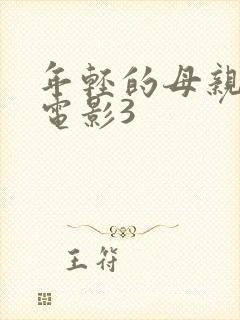 年轻的母親
電影3
王符